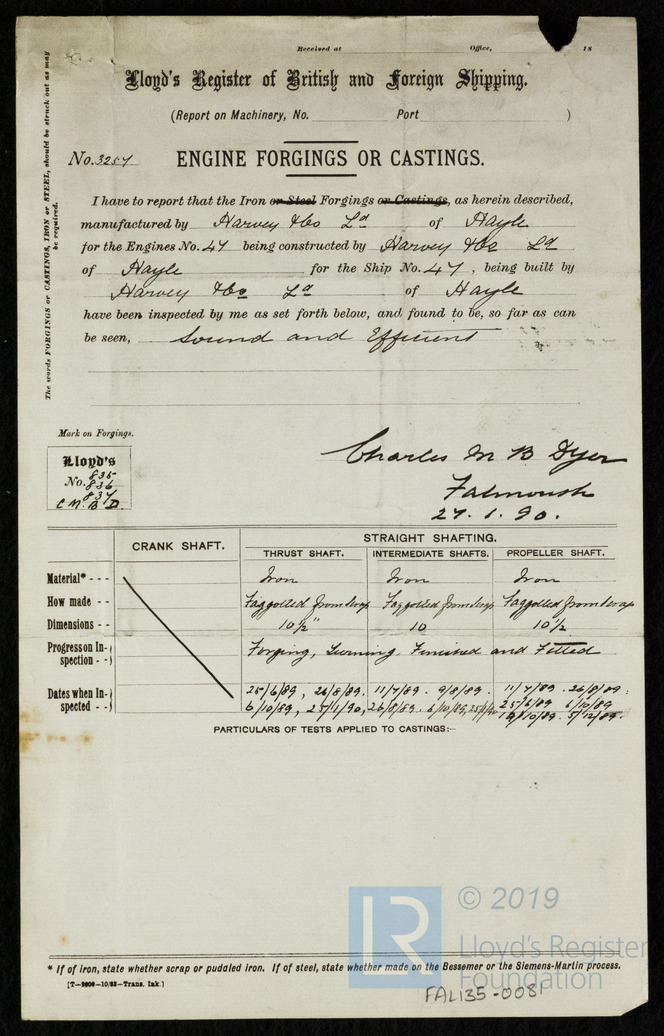 Received at Office, 18
Lloyd's Register of British and Foreign Shipping.
(Report on Machinery, No. Port )
The words FORGINGS or CASTINGS, IRON or STEEL, should be struck out as may be required.
No. 3257 ENGINE FORGINGS OR CASTINGS.
I have to report that the Iron or Steel Forgings or Castings, as herein described,
manufactured by Harvey & Co Ld of Hayle
for the Engines No. 47 being constructed by Harvey & Co Ld
of Hayle for the Ship No. 47, being built by
Harvey & Co Ld of Hayle
have been inspected by me as set forth below, and found to be, so far as can
be seen, Sound and Efficient
Mark on Forgings.
Lloyd's
No. 835
836
837
C M. B D.
Charles M B Dyer
Falmouth
27. 1. 90.
CRANK SHAFT. STRAIGHT SHAFTING.
THRUST SHAFT. INTERMEDIATE SHAFTS. PROPELLER SHAFT.
Material* - - - Iron Iron Iron
How made - - Faggotted from Scrap Faggotted from Scrap Faggotted from Scrap
Dimensions - - 10 1/2" 10 10 1/2
Progress on In-spection - -) Forging, Turning, Finished and Fitted
Dates when In-spected - -) 25/6/89, 26/8/89. 11/7/89. 9/8/89. 11/7/89. 26/8/89.
6/10/89, 25/1/90, 26/8/89. 6/10/89, 25/6/89 6/10/89
5/12/89.
PARTICULARS OF TESTS APPLIED TO CASTINGS:—
© 2019
LR
Lloyd's Register
Foundation
* If of iron, state whether scrap or pudaled iron. If of steel, state whether made on the Bessemer or the Siemens-Martin process.
FAL135-0081